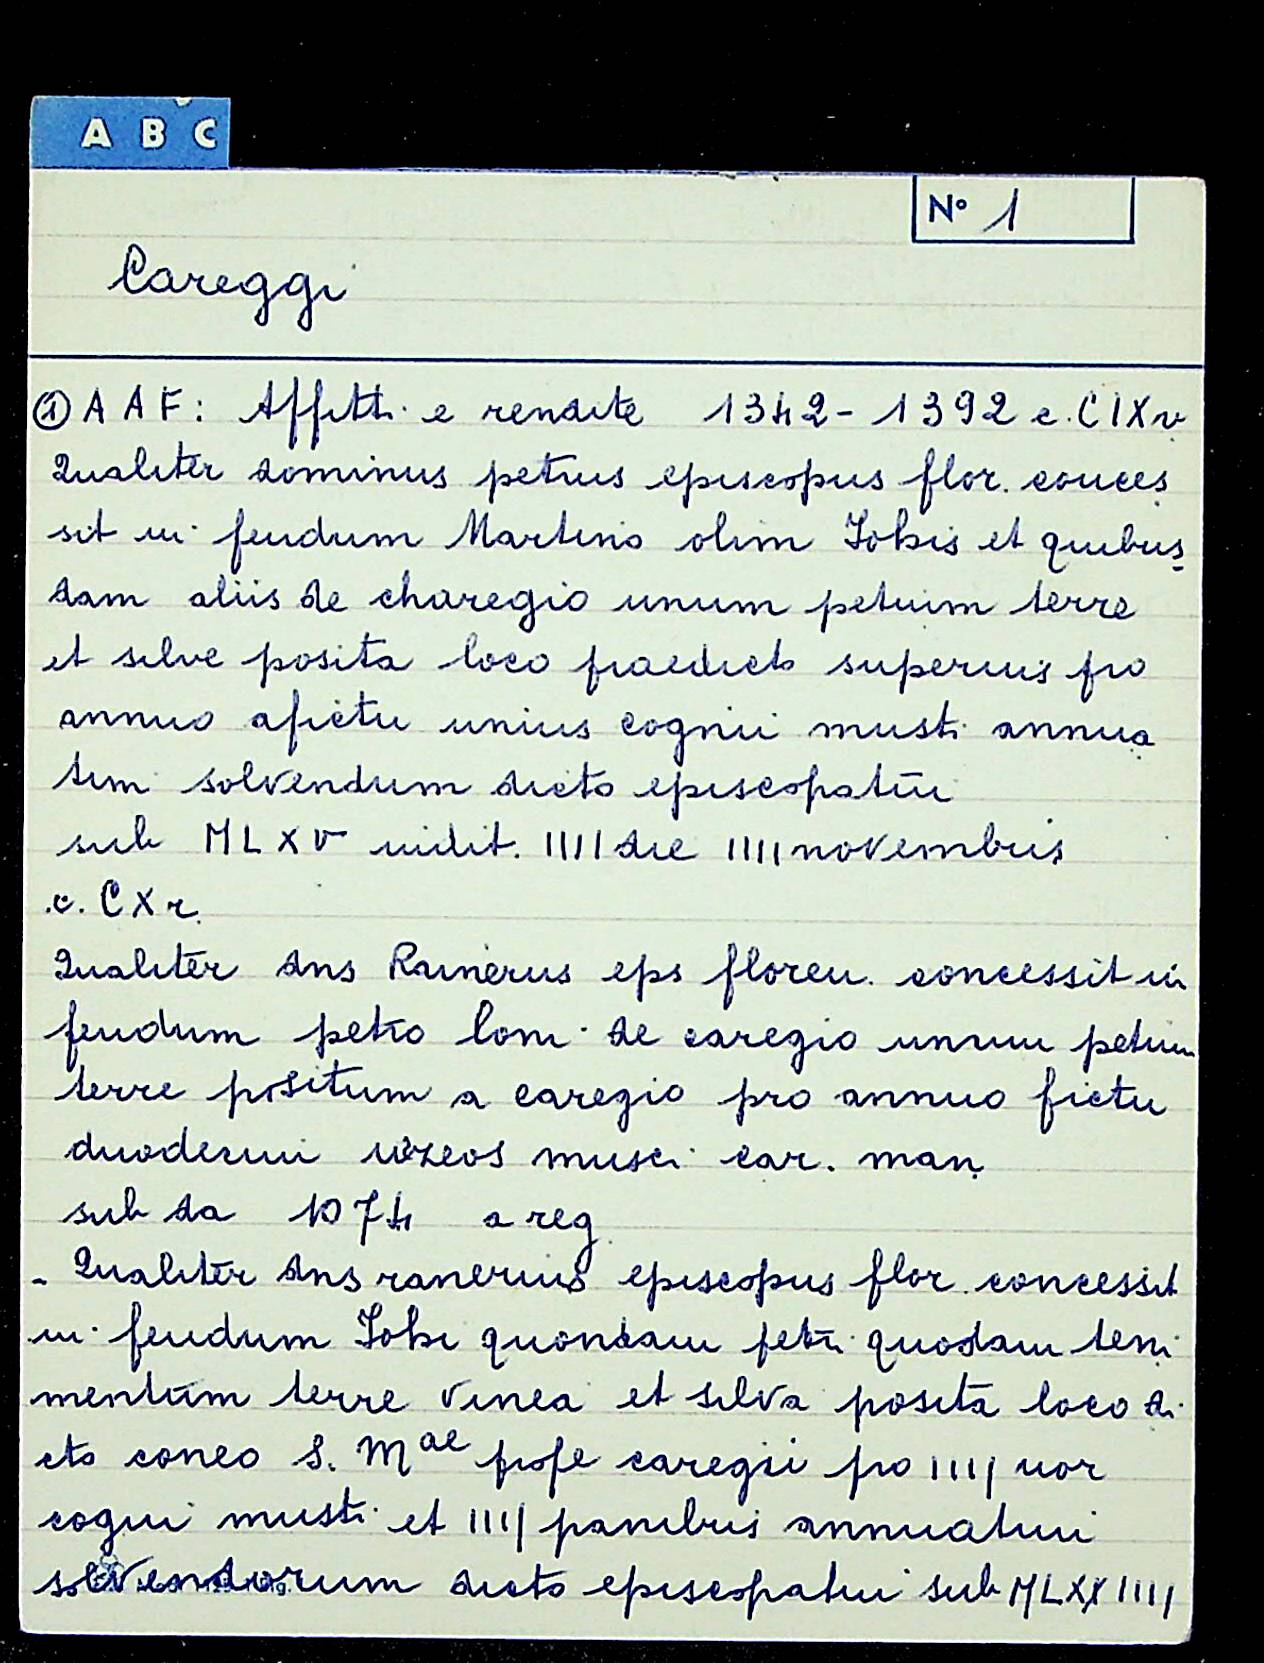 A B C
N° 1
Careggi
① A A F: Affitti e rendite 1342-1392 c. CIXv
Qualiter dominus petrus episcopus flor. conces
sit in feudum Martino olim Iohis et quibus
dam aliis de charegio unum petium terre
et silve posita loco praedicto superius pro
annuo afictu unius cognii musti annua
tim solvendum dicto episcopatui
sub MLXV indit. IIII die IIII novembris
c. CXr.
Qualiter dns Rainerus eps floren. concessit in
feudum petro loni de caregio unum petium
terre positum a caregio pro annuo fictu
duodecim musci car. man
sub da 1074 a reg
- Qualiter dns ranerius episcopus flor. concessit
in feudum Iohi quondam petri quodam teni
mentum terre vinea et silva posita loco di
cto coneo S. Mae prope caregii pro IIII uor
cogni musti et IIII panibus annuatim
solvendorum dicto episcopatui sub MLXXIIII